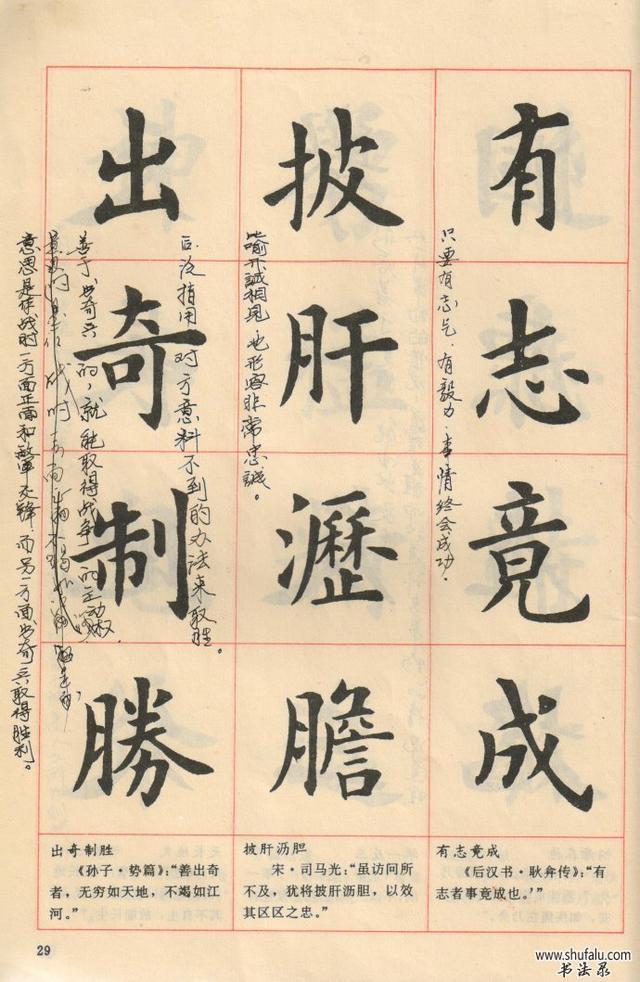 有志竟成
只要有志气，有毅力，事情终会成功．
披肝瀝膽
比喻开誠相見，也形容非常忠誠。
出奇制勝
后泛指用对方意料不到的办法来取胜。
善于出奇兵的，就能取得战争的主动权．
意思是作战时一方面正面和敌军交锋 而另一方面出奇兵取得胜利。
有志竟成
《后汉书·耿弇传》：“有
志者事竟成也。’”
披肝沥胆
宋·司马光：“虽访问所
不及，犹将披肝沥胆，以效
其区区之忠。”
出奇制胜
《孙子·势篇》：“善出奇
者，无穷如天地，不竭如江
河。”
29
www.shufalu.com
书法录